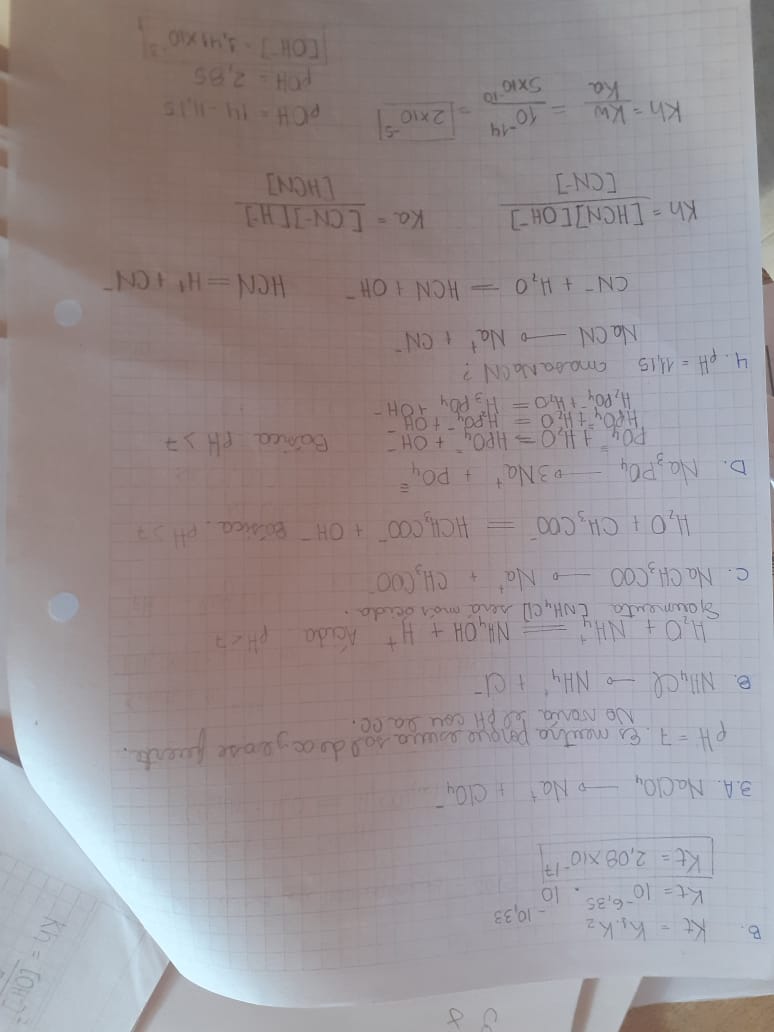 B. Kt = K₁.K₂
Kt = 10^-6,35 . 10^-10,33
Kt = 2,08x10^-17
3.A. NaClO₄ → Na⁺ + ClO₄⁻
pH = 7. Es neutra porque es una sal de ac y base fuerte.
No varía el pH con la CC.
B. NH₄Cl → NH₄⁺ + Cl⁻
H₂O + NH₄⁺ ═ NH₄OH + H⁺ Ácida pH<7
Si aumenta [NH₄Cl] será más ácida.
C. NaCH₃COO → Na⁺ + CH₃COO⁻
H₂O + CH₃COO⁻ = HCH₃COO⁻ + OH⁻ Básica. pH >7
D. Na₃PO₄ → 3Na⁺ + PO₄≡
PO₄≡ + H₂O = HPO₄⁼ + OH⁻ Básica pH >7
HPO₄⁼ + H₂O = H₂PO₄⁻ + OH⁻
H₂PO₄⁻ + H₂O = H₃PO₄ + OH⁻
4. pH = 11,15 masa NaCN?
NaCN → Na⁺ + CN⁻
CN⁻ + H₂O = HCN + OH⁻ HCN = H⁺ + CN⁻
Kh = [HCN][OH⁻] / [CN⁻] Ka = [CN⁻][H⁺] / [HCN]
Kh = Kw / Ka = 10^-14 / 5x10^-10 = 2x10^-5 pOH = 14 - 11,15
pOH = 2,85
[OH⁻] = 1,41x10^-3
Kh = [OH⁻]²